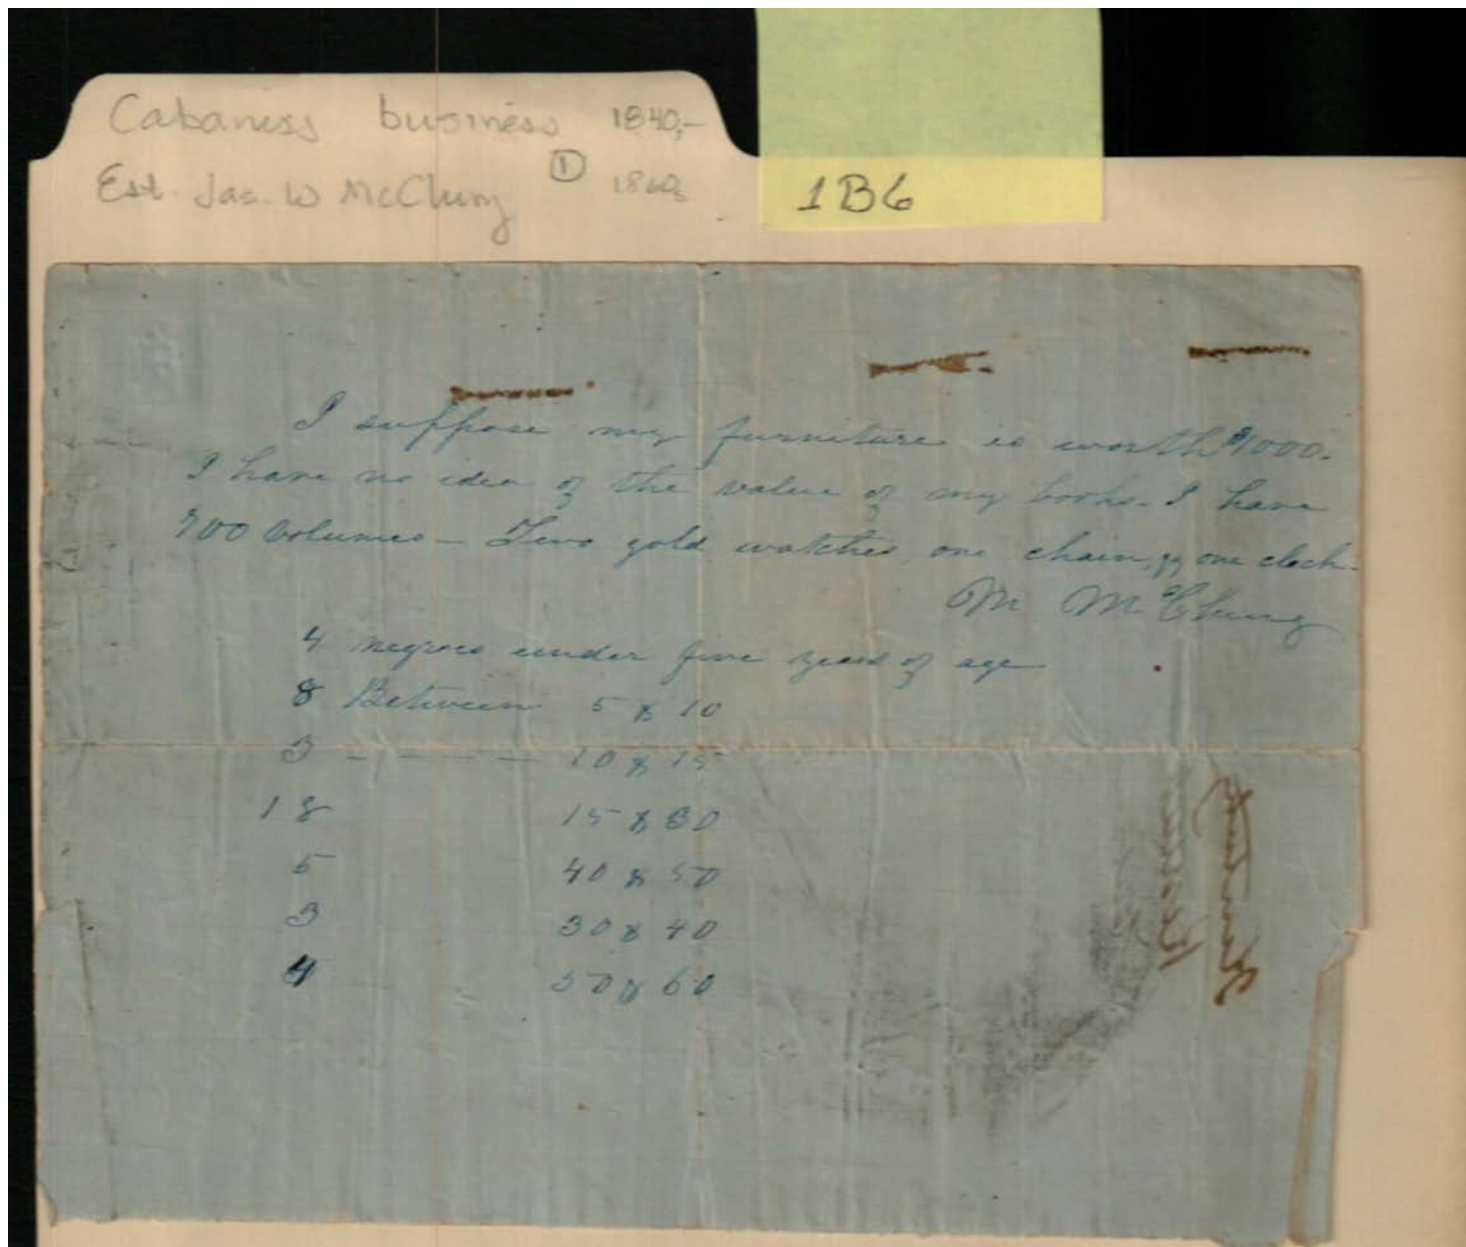 Cabaniss business 1840,-
Est. Jas. W McClung ① 1860s
1B6
I suppose my furniture is worth $1000.
I have no idea of the value of my books. I have
700 Volumes — Two gold watches, one chain, & one clock
M McClung
4 negroes under five years of age
8 Between 5 & 10
3 - - - - 10 & 15
18 15 & 30
5 40 & 50
3 30 & 40
4 50 & 60